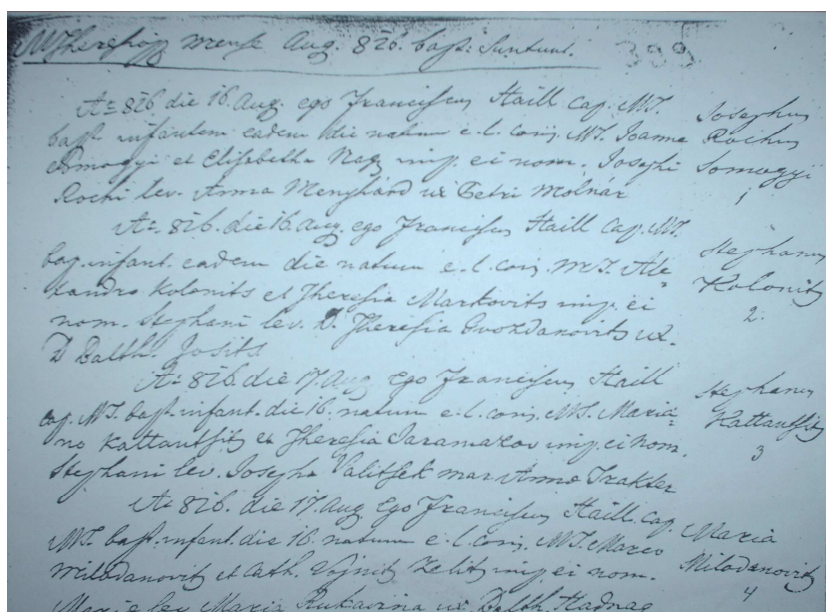 M Theresiop mense Aug. 826. bapt: Suntunt. 399
Ao 826 die 16. Aug. ego Franciscus Haill Cap. MT.
bapt infantem eadem die natum e. l. coni. MT. Joanne
Somogyi et Elisabetha Nagy imp. ei nom. Josephi
Rochi lev. Anna Menyhárd ux Petri Molnár
Josephus
Rochus
Somogyi
1
Ao. 826. die 16. Aug. ego Franciscus Haill Cap. MT.
bap. infant. eadem die natum e. l. coni. MT. Ale=
xandro Kolonits et Theresia Markovits imp. ei
nom. Stephani lev. D. Theresia Gvozdanovits ux.
D Balth. Josits
Stephanus
Kolonits
2.
Ao 826. die 17. Aug ego Franciscus Haill
cap. MT. bapt. infant. die 16. natum e. l. coni. MT. Maria=
no Kattantsits et Theresia imp. ei nom.
Stephani lev. Josepha Valitsek mar Anna
Stephanus
Kattantsits
3
Ao 826. die 17. Aug Ego Franciscus Haill. Cap.
MT. bapt. infant. die 16. natum e. l. coni. MT. Marco
Milodanovits et Cath. Vojnits Zelits imp ei nom.
Mariae lev Maria Rukavina ux. Balth. Hadnag
Maria
Milodanovits
4